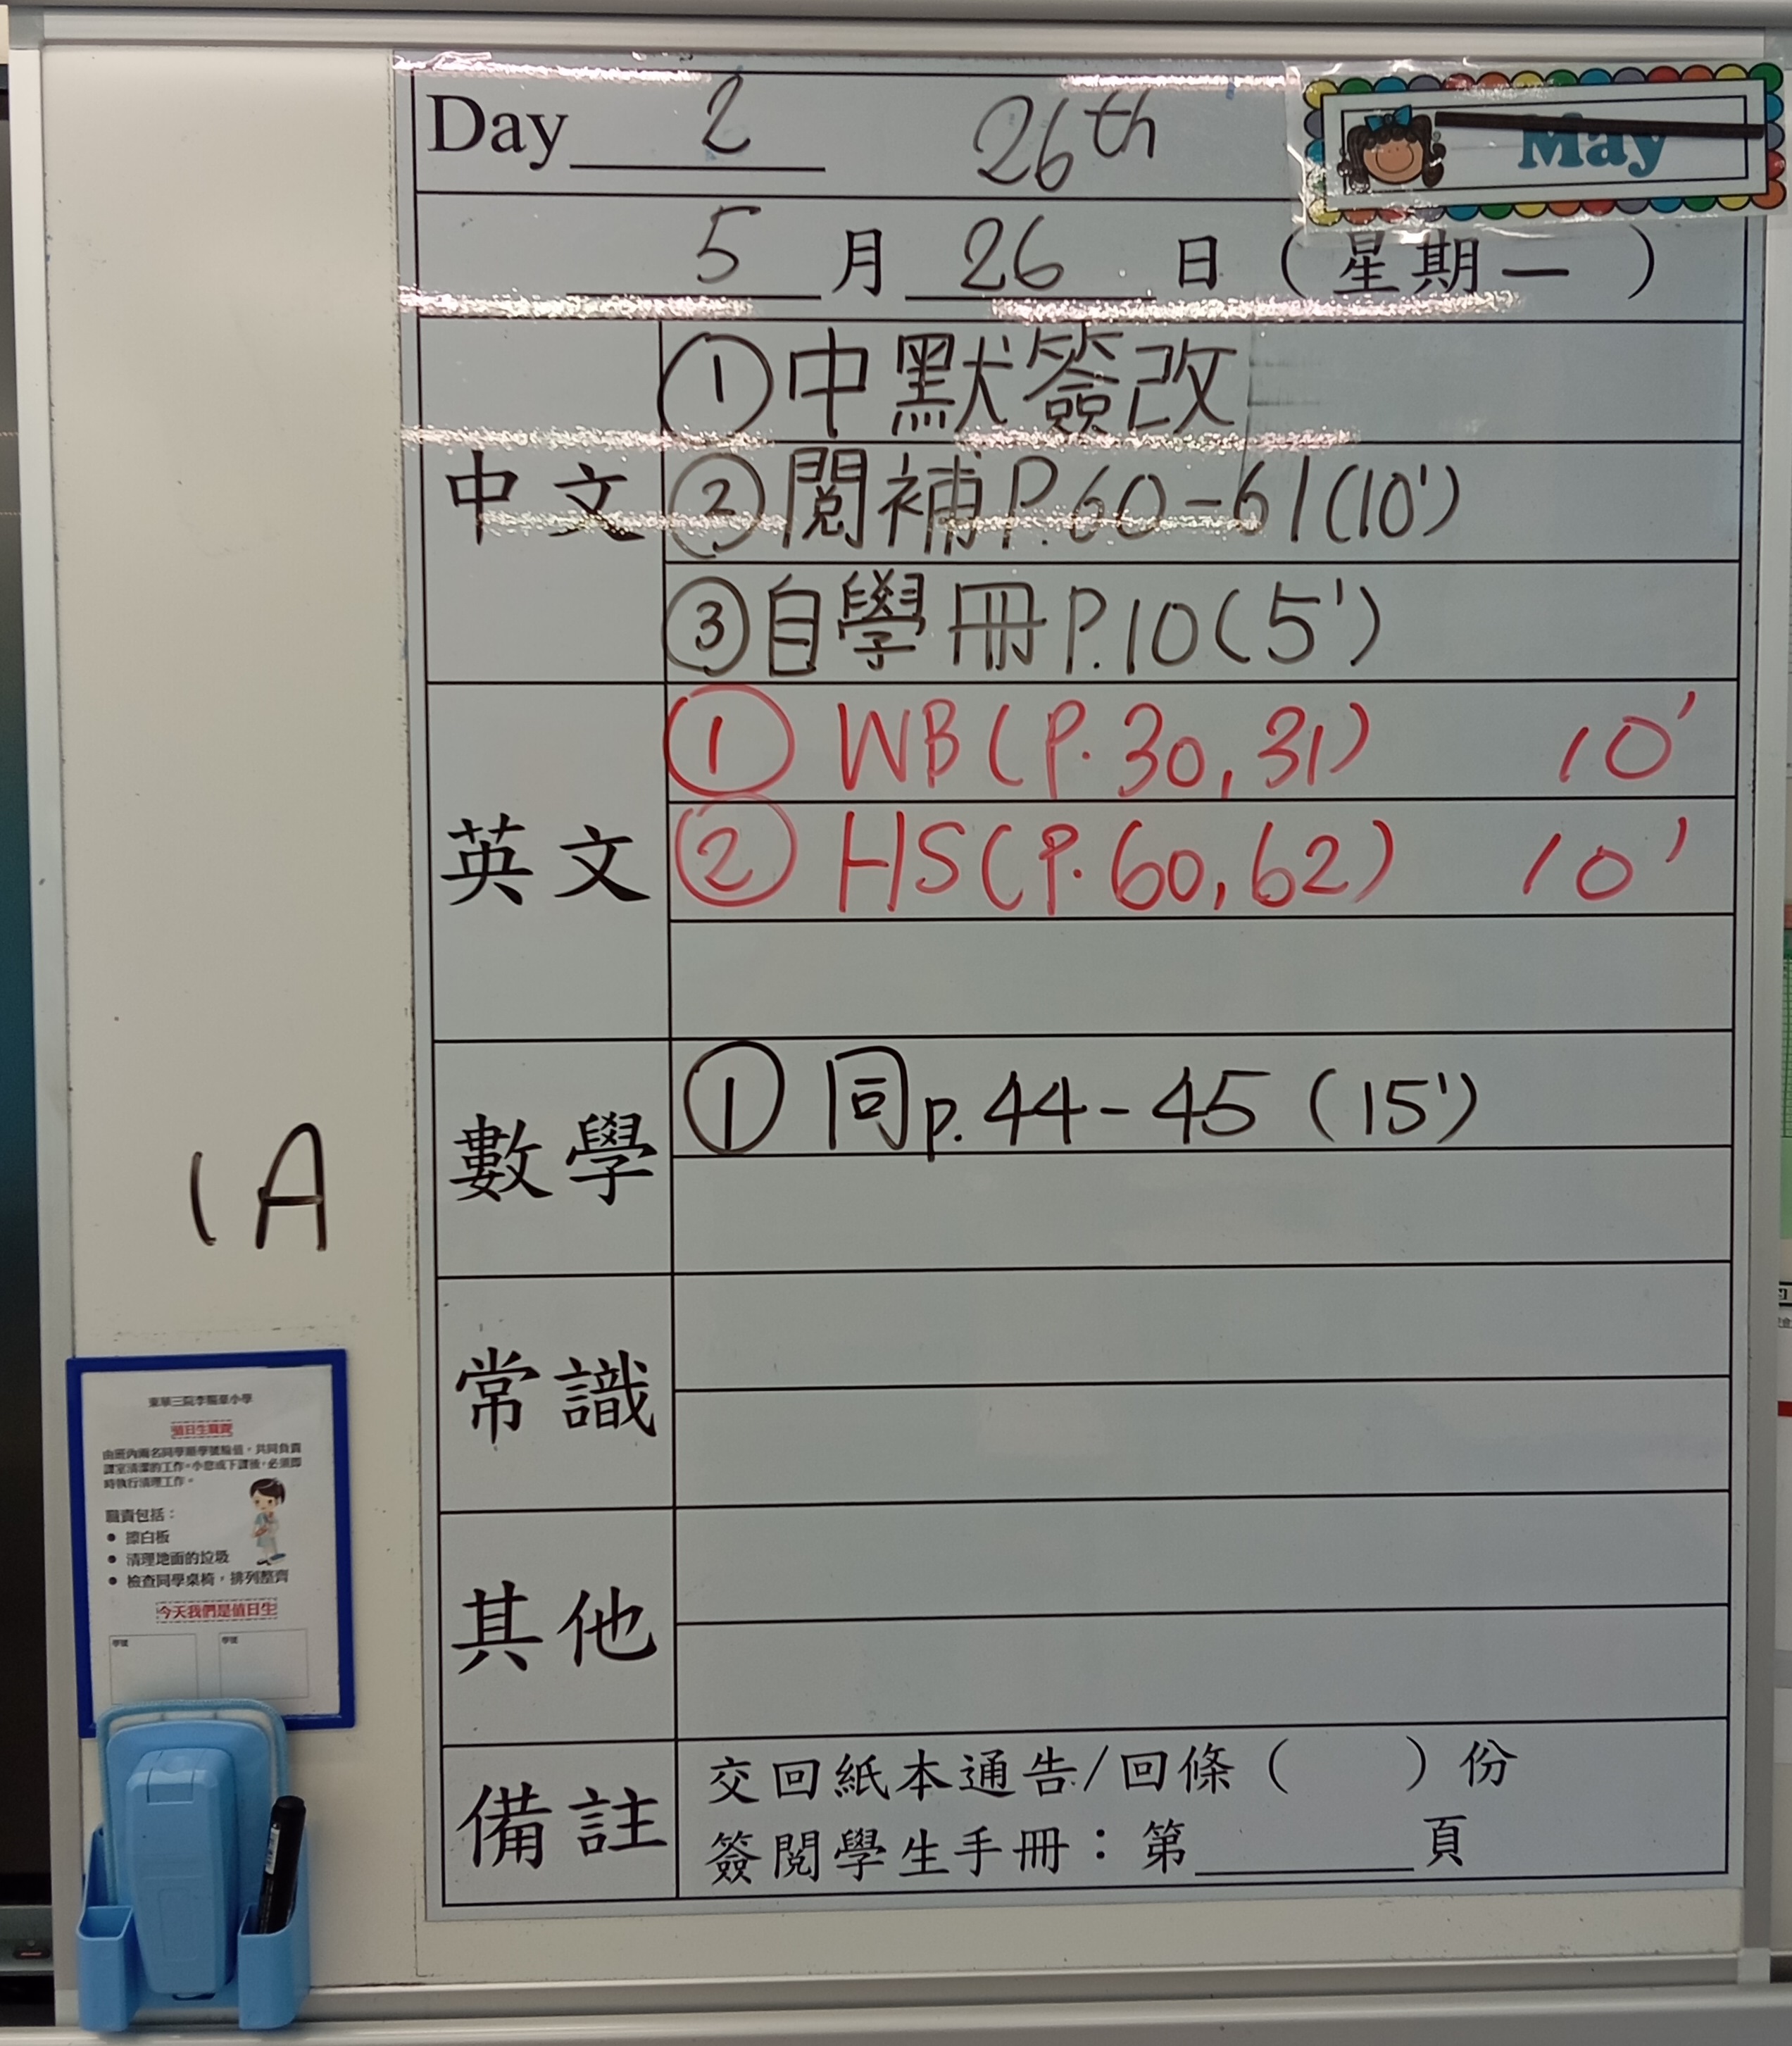 Day 2 26th May
5月26日（星期一）
中文
①中默簽改
②閱補P.60-61(10')
③自學冊P.10(5')
英文
① WB(P.30,31) 10'
② HS(P.60,62) 10'
數學
① 同p.44-45 (15')
常識
其他
備註
交回紙本通告/回條（ ）份
簽閱學生手冊：第____頁
1A
東華三院李賜豪小學
值日生職責
由班內兩名同學順學號輪值，共同負責
課室清潔的工作。小息或下課後，必須即
時執行清理工作。
職責包括：
● 擦白板
● 清理地面的垃圾
● 檢查同學桌椅，排列整齊
今天我們是值日生
學號 學號